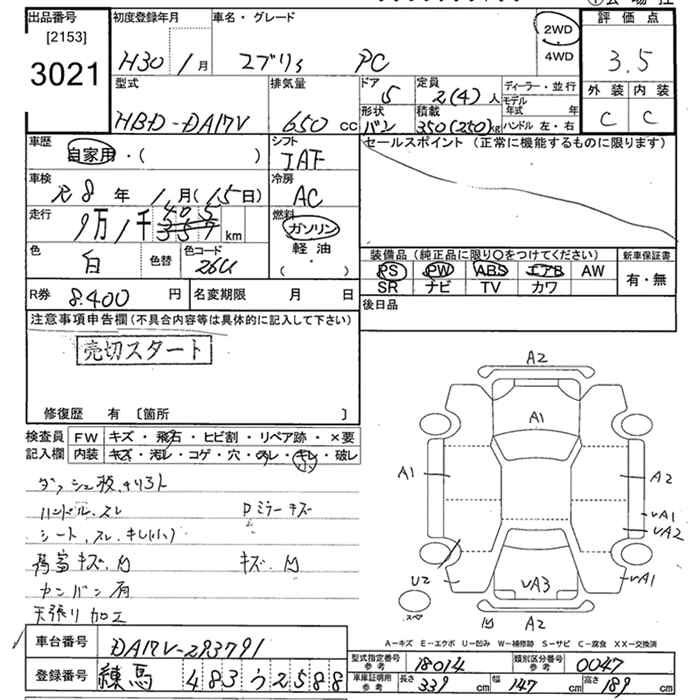 出品番号 初度登録年月 車名・グレード 2WD 評価点
[2153]
3021 H30 1月 エブリィ PC 4WD 3.5
型式 排気量 ドア 定員 ディーラー・並行 外装 内装
HBD-DA17V 650 cc 5 2(4)人 モデル年式 年 C C
形状 積載
バン 350(250)kg ハンドル 左・右
車歴 シフト セールスポイント (正常に機能するものに限ります)
自家用・( ) IAT
車検 冷房
R 8年 1月(15日) AC
走行 燃料
9万1千405 km ガソリン
色 色替 色コード 軽油・
白 26U ( )
装備品 (純正品に限り○をつけてください) 新車保証書
PS PW ABS エアB AW 有・無
SR ナビ TV カワ
R券 8.400円 名変期限 月 日 後日品
注意事項申告欄(不具合内容等は具体的に記入して下さい)
売切スタート
修復歴 有 [箇所 ]
検査員 FW キズ・飛石・ヒビ割・リペア跡・×要
記入欄 内装 キズ・汚レ・コゲ・穴・スレ・キレ・破レ
ハンドル.スレ Dミラーキズ
シート.スレ.キレ(小)
荷室キズ.凹 キズ.凹
カンバン有
天張り加工
A2
A1
A1 A2
UA1
UA2
U2 UA3 UA1
スペ 凹 A2
A-キズ E-エクボ U-凹み W-補修跡 S-サビ C-腐食 XX-交換済
車台番号 DA17V-293791
型式指定番号 参考 18014 類別区分番号 参考 0047
登録番号 練馬 483う2588
車庫証明用 参考 長さ 339 cm 幅 147 cm 高さ 189 cm